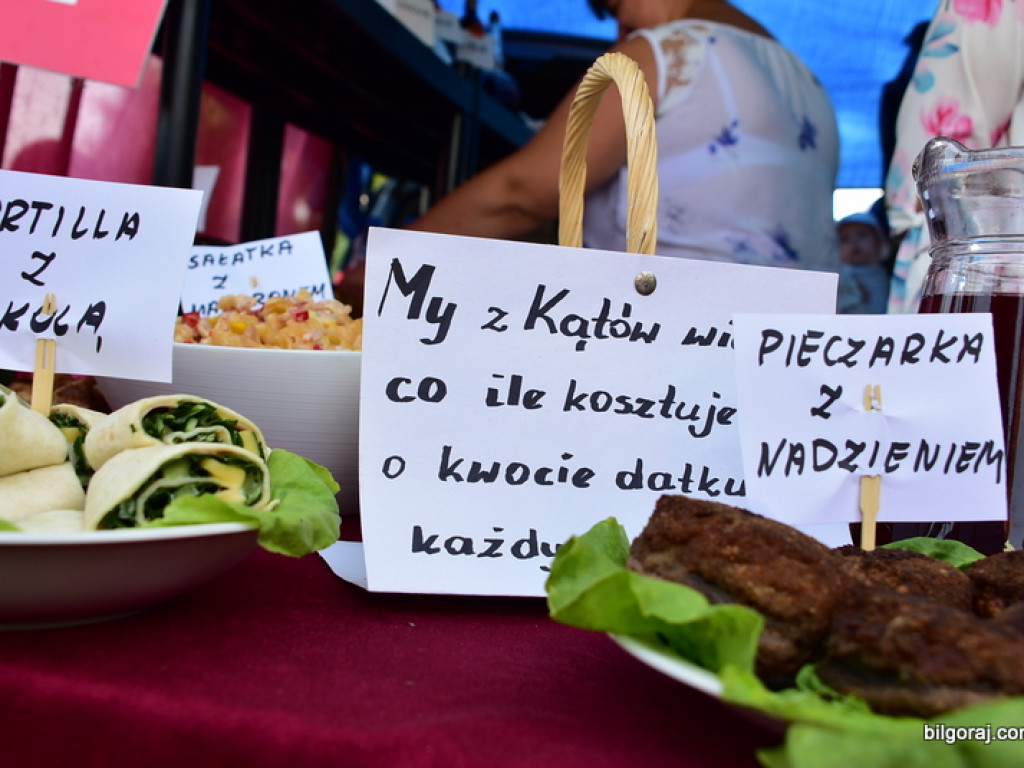 RTILLA
Z
KUŁĄ
SAŁATKA
Z
My z Kątów wi
co ile kosztuje
o kwocie datku
każdy
PIECZARKA
Z
NADZIENIEM
bilgoraj.com